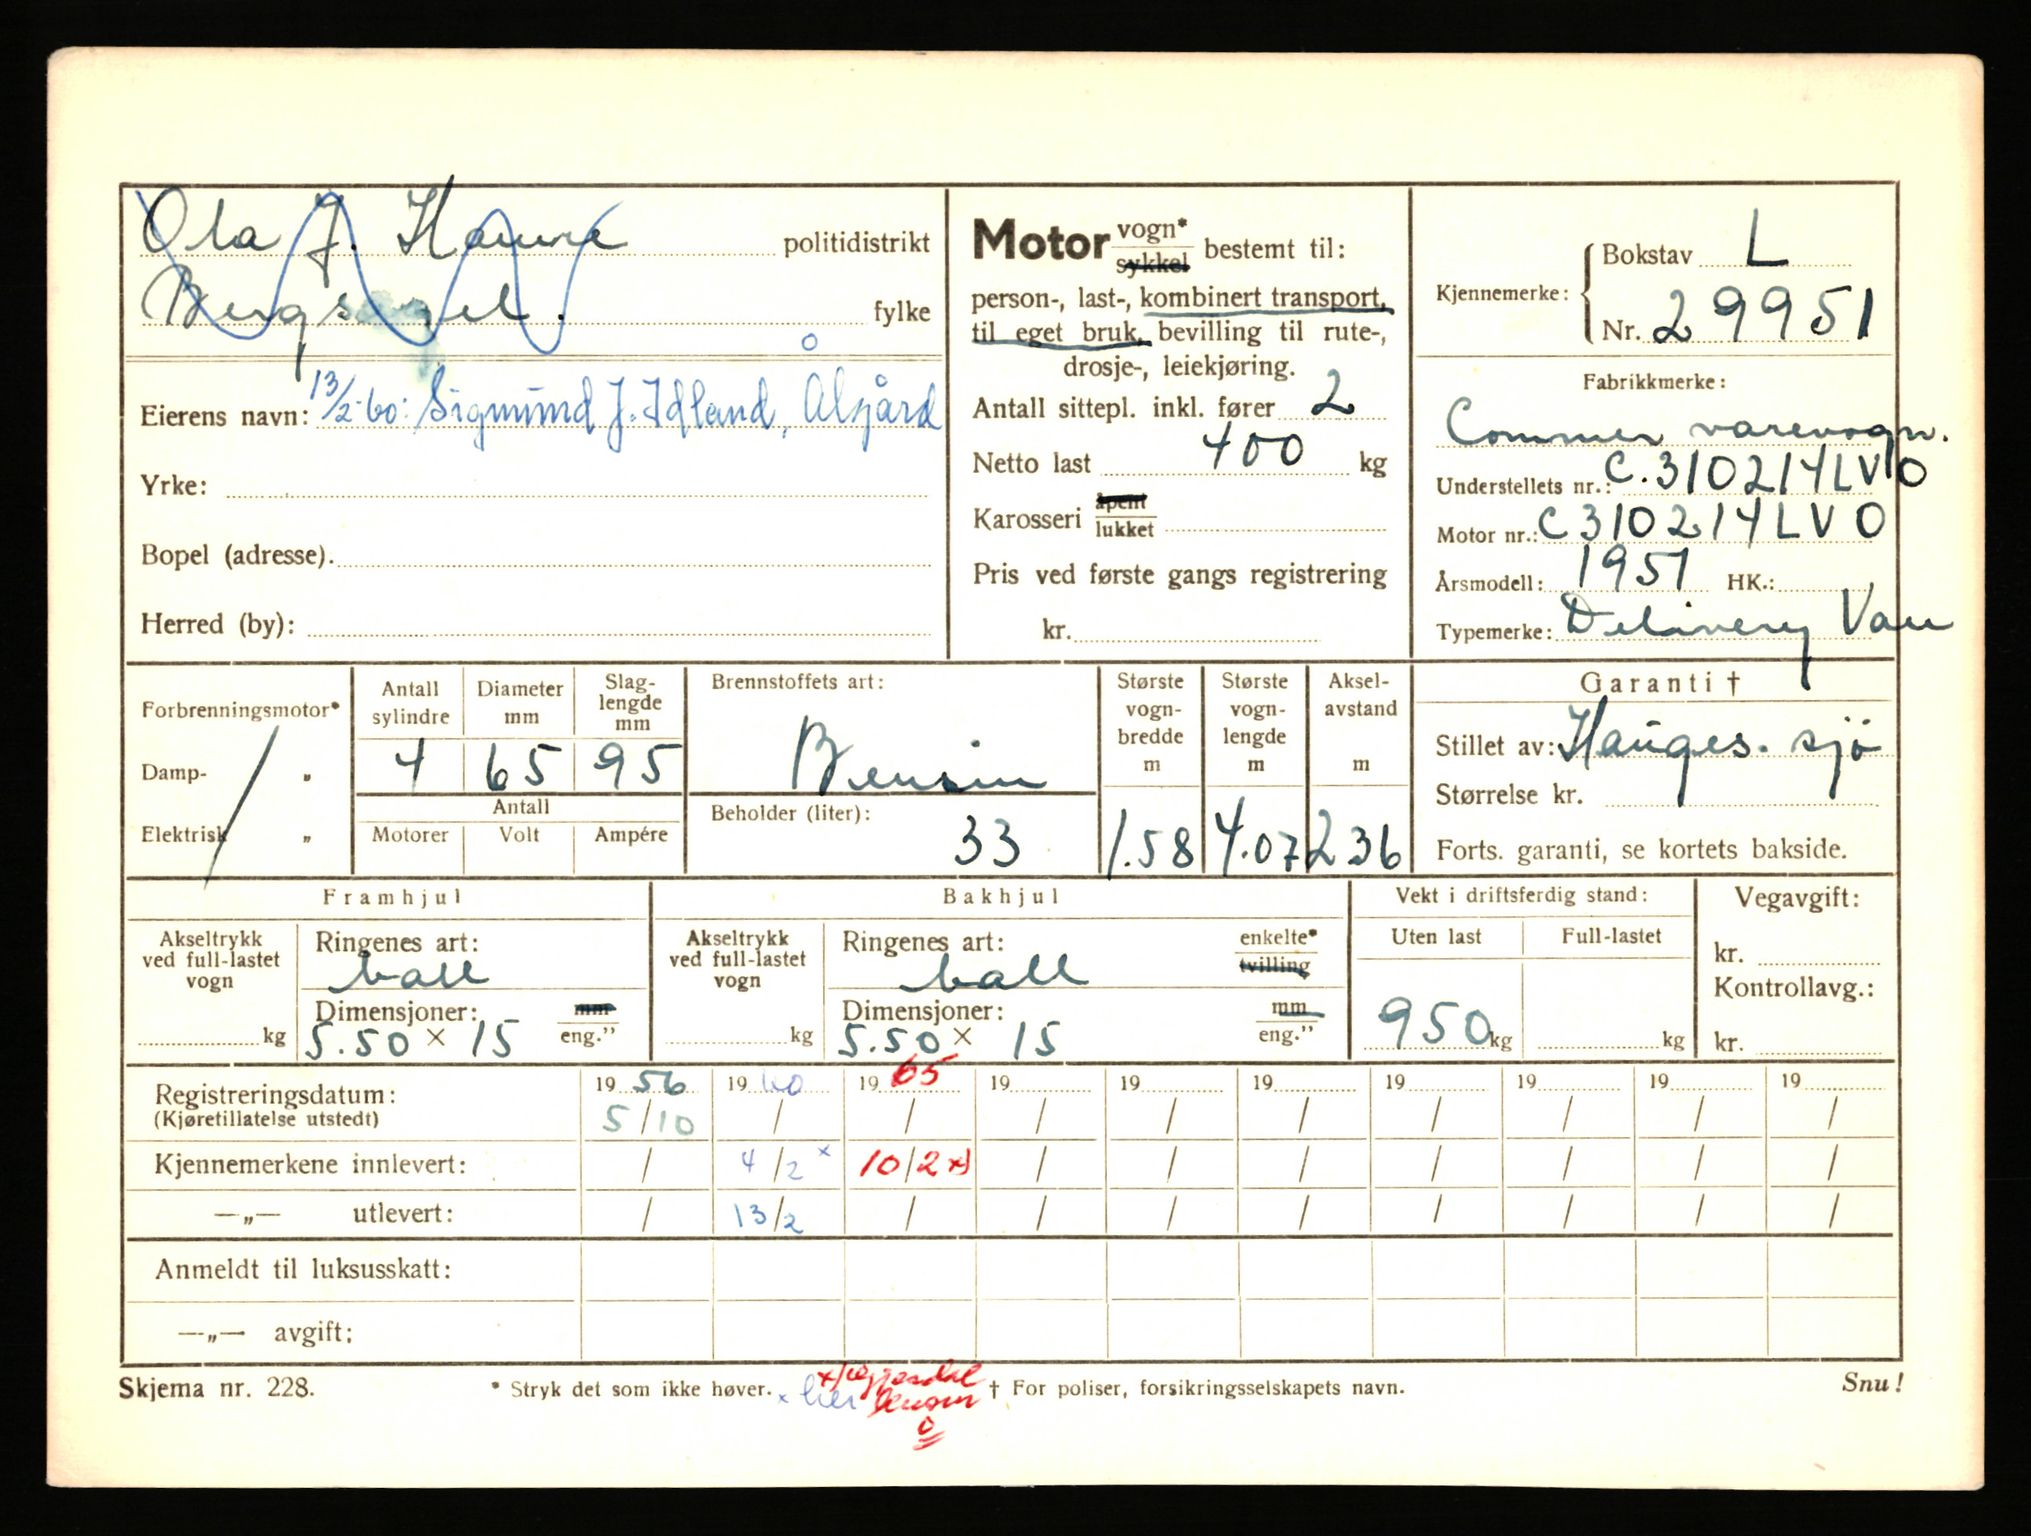 Ola J. Haune politidistrikt
Bergsagel. fylke
Eierens navn: 13/2-60: Sigmund J. Idland, Ålgård
Yrke:
Bopel (adresse).
Herred (by):
Motor vogn* sykkel bestemt til:
person-, last-, kombinert transport,
til eget bruk, bevilling til rute-,
drosje-, leiekjøring.
Antall sittepl. inkl. fører 2
Netto last 400 kg
Karosseri åpent lukket
Pris ved første gangs registrering
kr.
Kjennemerke: Bokstav L
Nr. 29951
Fabrikkmerke:
Commer varevogn.
Understellets nr.: C.310214LVO
Motor nr.: C310214LVO
Årsmodell: 1951 HK.:
Typemerke: Delivery Van
Forbrenningsmotor*
Damp- "
Elektrisk "
Antall sylindre 4
Diameter mm 65
Slaglengde mm 95
Antall
Motorer Volt Ampére
Brennstoffets art:
Bensin
Beholder (liter):
33
Største vognbredde m 1.58
Største vognlengde m 4.07
Akselavstand m 236
Garanti †
Stillet av: Hauges. sjø
Størrelse kr.
Forts. garanti, se kortets bakside.
Framhjul
Akseltrykk ved full-lastet vogn
kg
Ringenes art:
ball
Dimensjoner: mm
5.50 x 15 eng."
Bakhjul
Akseltrykk ved full-lastet vogn
kg
Ringenes art: enkelte*
ball tvilling
Dimensjoner: mm
5.50 x 15 eng."
Vekt i driftsferdig stand:
Uten last Full-lastet
950 kg kg
Vegavgift:
kr.
Kontrollavg.:
kr.
Registreringsdatum: 19 56 19 60 19 65 19 19 19 19 19 19 19
(Kjøretillatelse utstedt) 5/10 / / / / / / / / /
Kjennemerkene innlevert: / 4/2 x 10/2 x) / / / / / / /
—„— utlevert: / 13/2 / / / / / / / /
Anmeldt til luksusskatt:
—„— avgift:
Skjema nr. 228. * Stryk det som ikke høver. † For poliser, forsikringsselskapets navn. Snu!